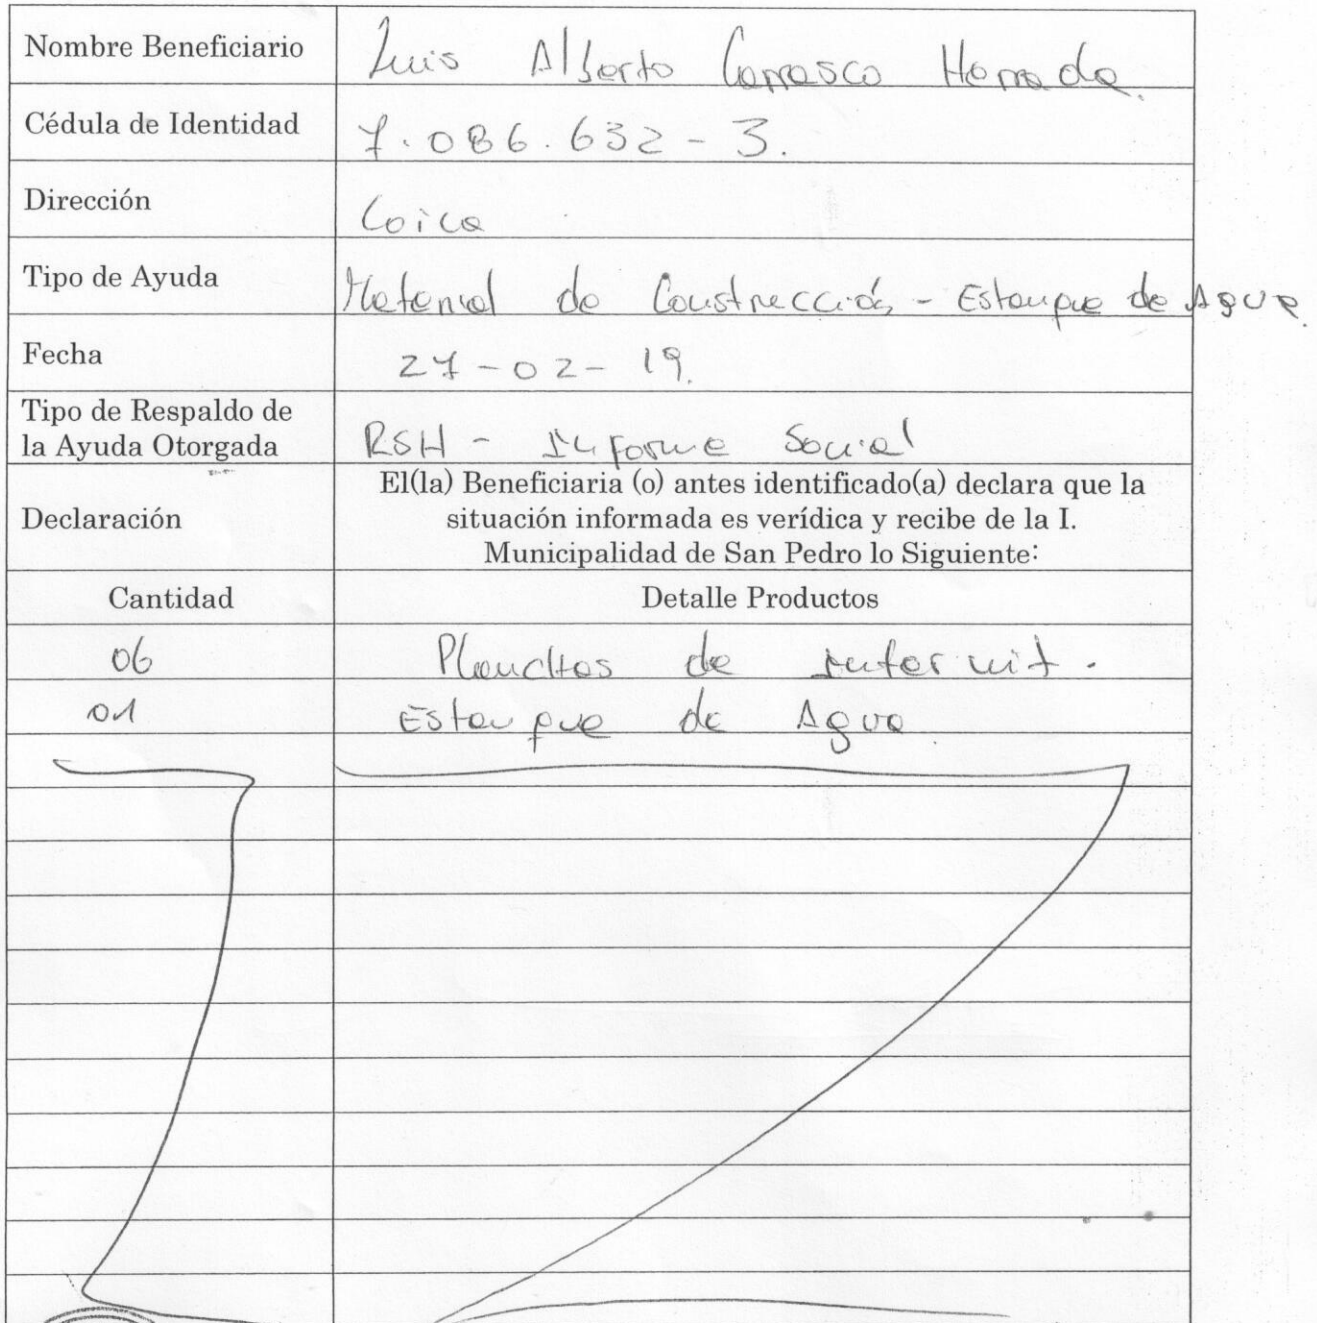 Nombre Beneficiario Luis Alberto Carrasco Horrada.
Cédula de Identidad 7.086.632-3.
Dirección Loica
Tipo de Ayuda Material de Construcción - Estanque de Agua.
Fecha 27-02-19.
Tipo de Respaldo de
la Ayuda Otorgada RSH - Informe Social
El(la) Beneficiaria (o) antes identificado(a) declara que la
Declaración situación informada es verídica y recibe de la I.
Municipalidad de San Pedro lo Siguiente:
Cantidad Detalle Productos
06 Planchas de internit.
01 Estanque de Agua